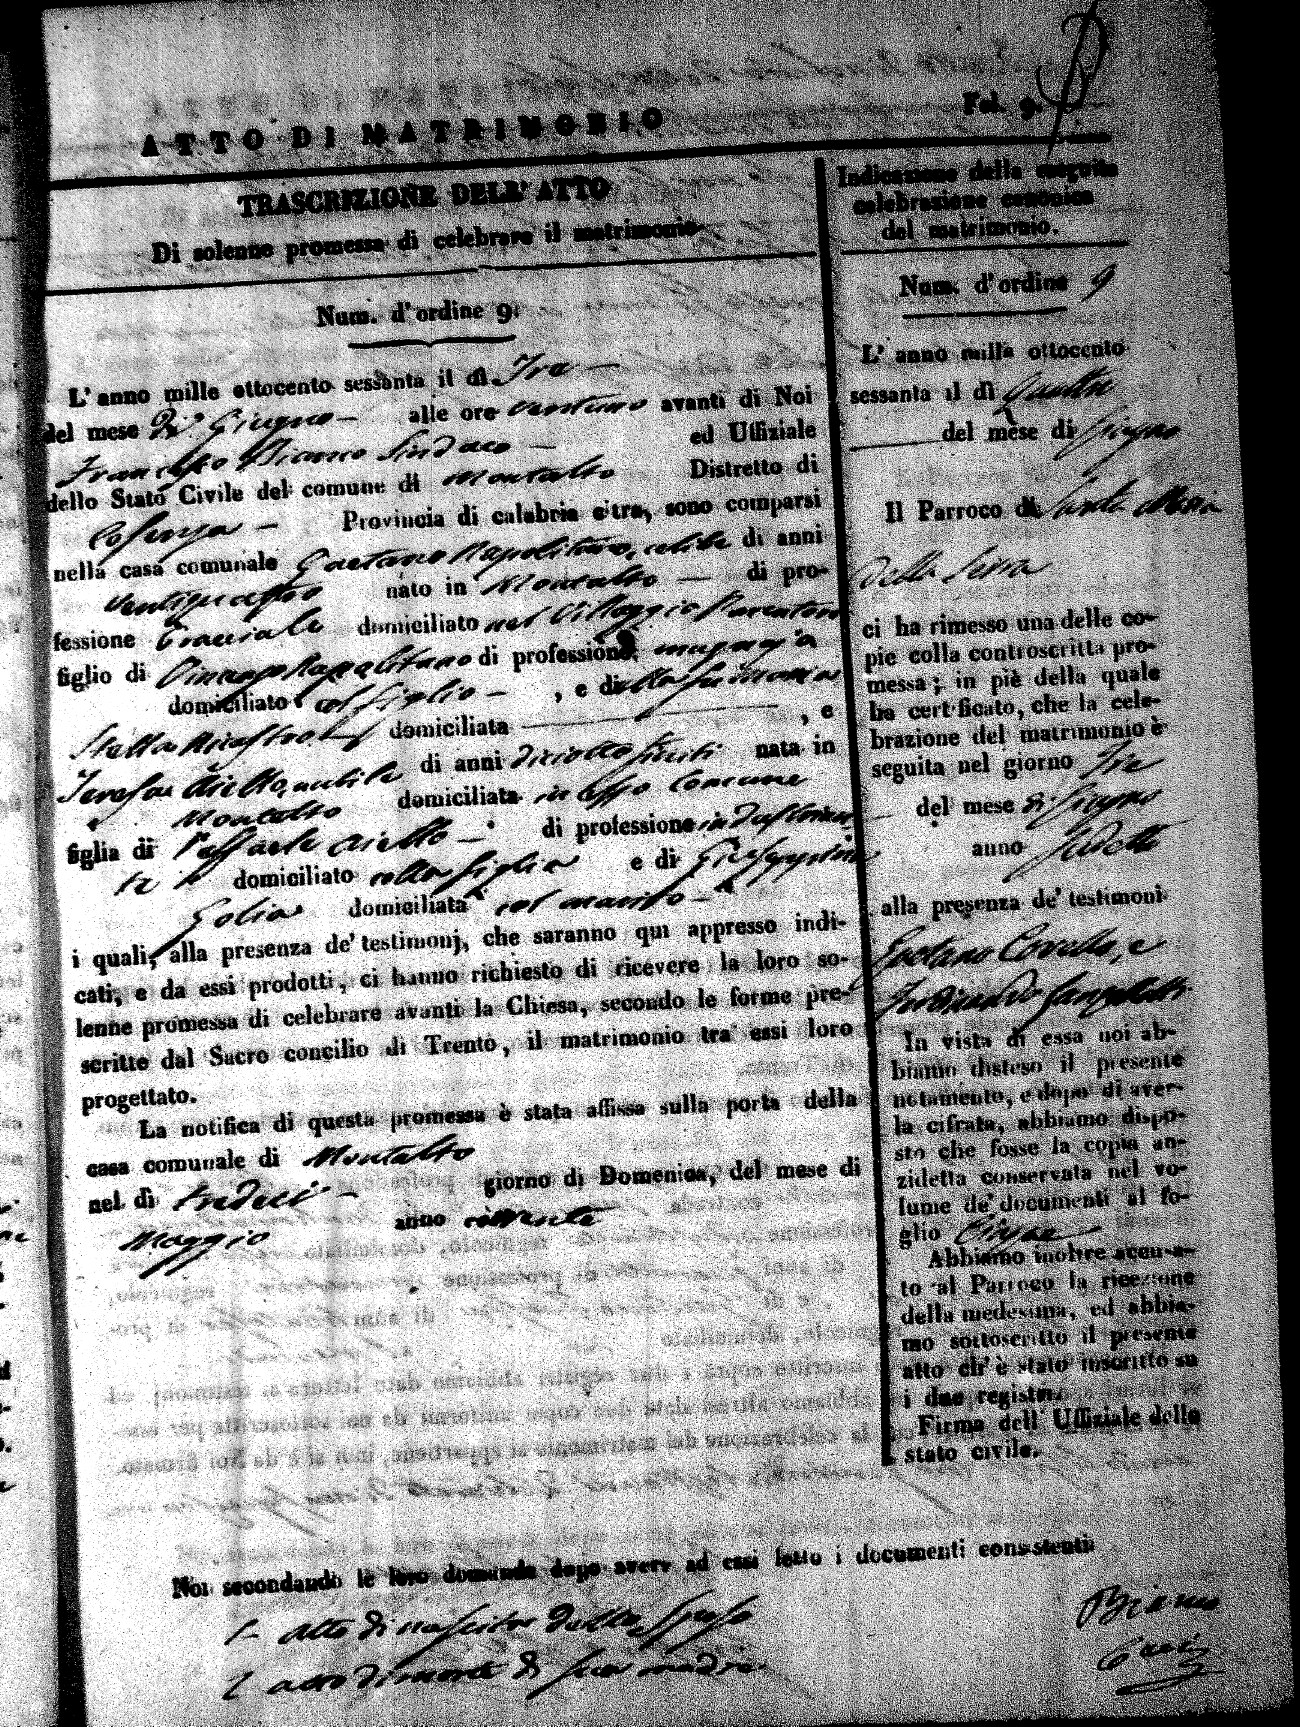 Fol. 9.
ATTO DI MATRIMONIO
TRASCRIZIONE DELL' ATTO
Di solenne promessa di celebrare il matrimonio
Num. d'ordine 9.
L'anno mille ottocento sessanta il dì Tre
del mese di Giugno alle ore ventuno avanti di Noi
Francesco Bianco Sindaco ed Uffiziale
dello Stato Civile del comune di Montalto Distretto di
Cosenza Provincia di calabria citra, sono comparsi
nella casa comunale Gaetano Napolitano, celibe di anni
ventiquattro nato in Montalto di pro-
fessione Bracciale domiciliato nel Villaggio Parantoro
figlio di Vincenzo Napolitano di professione mugnajo
domiciliato col figlio , e di della fu
Stella domiciliata , e
Teresa Aiello, nubile di anni diciotto finiti nata in
Montalto domiciliata in esso Comune
figlia di Raffaele Aiello di professione
domiciliato colla figlia e di Giuseppina
Golia domiciliata col marito
i quali, alla presenza de' testimonj, che saranno qui appresso indi-
cati, e da essi prodotti, ci hanno richiesto di ricevere la loro so-
lenne promessa di celebrare avanti la Chiesa, secondo le forme pre-
scritte dal Sacro concilio di Trento, il matrimonio tra essi loro
progettato.
La notifica di questa promessa è stata affissa sulla porta della
casa comunale di Montalto
nel dì tredici giorno di Domenica, del mese di
Maggio anno corrente
Indicazione della seguita
celebrazione canonica
del matrimonio.
Num. d'ordine 9
L'anno mille ottocento
sessanta il dì Quattro
del mese di Giugno
Il Parroco di Santa Maria
della Serra
ci ha rimesso una delle co-
pie colla controscritta pro-
messa; in piè della quale
ha certificato, che la cele-
brazione del matrimonio è
seguita nel giorno Tre
del mese di Giugno
anno sudetto
alla presenza de' testimoni
Gaetano Covello, e
Ferdinando
In vista di essa noi ab-
biamo disteso il presente
notamento, e dopo di aver-
la cifrata, abbiamo dispo-
sto che fosse la copia an-
zidetta conservata nel vo-
lume de' documenti al fo-
glio Cinque
Abbiamo inoltre accusa-
to al Parroco la ricezione
della medesima, ed abbia-
mo sottoscritto il presente
atto ch'è stato inscritto su
i due registri.
Firma dell' Uffiziale dello
stato civile.
Noi secondando le loro domande dopo avere ad essi letto i documenti consistenti
1- atto di nascita dello sposo
2 atto di morte di sua madre
Bianco